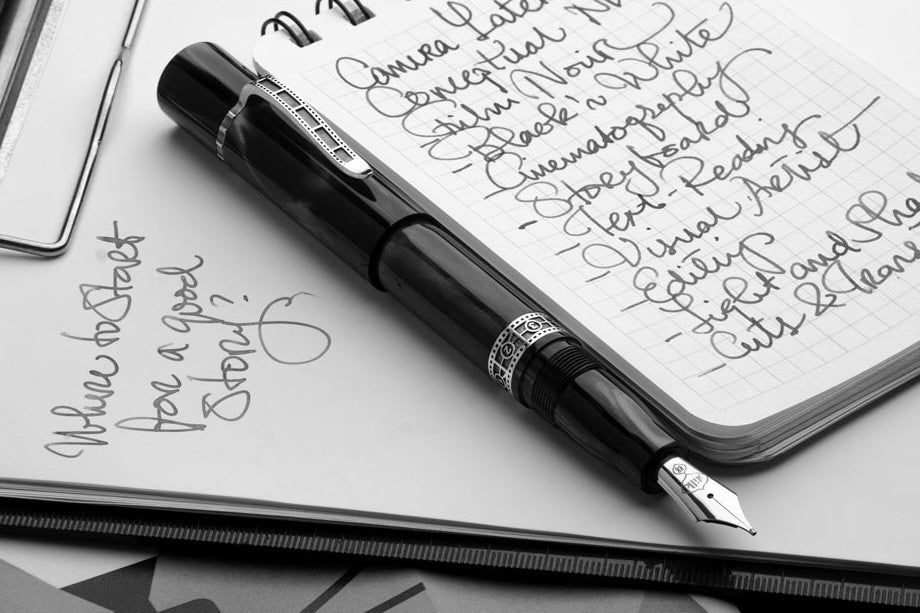 Camera
Conceptual
Film Noir
- Black'n White
- Cinematography
- Storyboard
- Text-Reading
- Visual Artist
- Editing
- Light and
- Cuts &
Where to Start
for a good
Story?